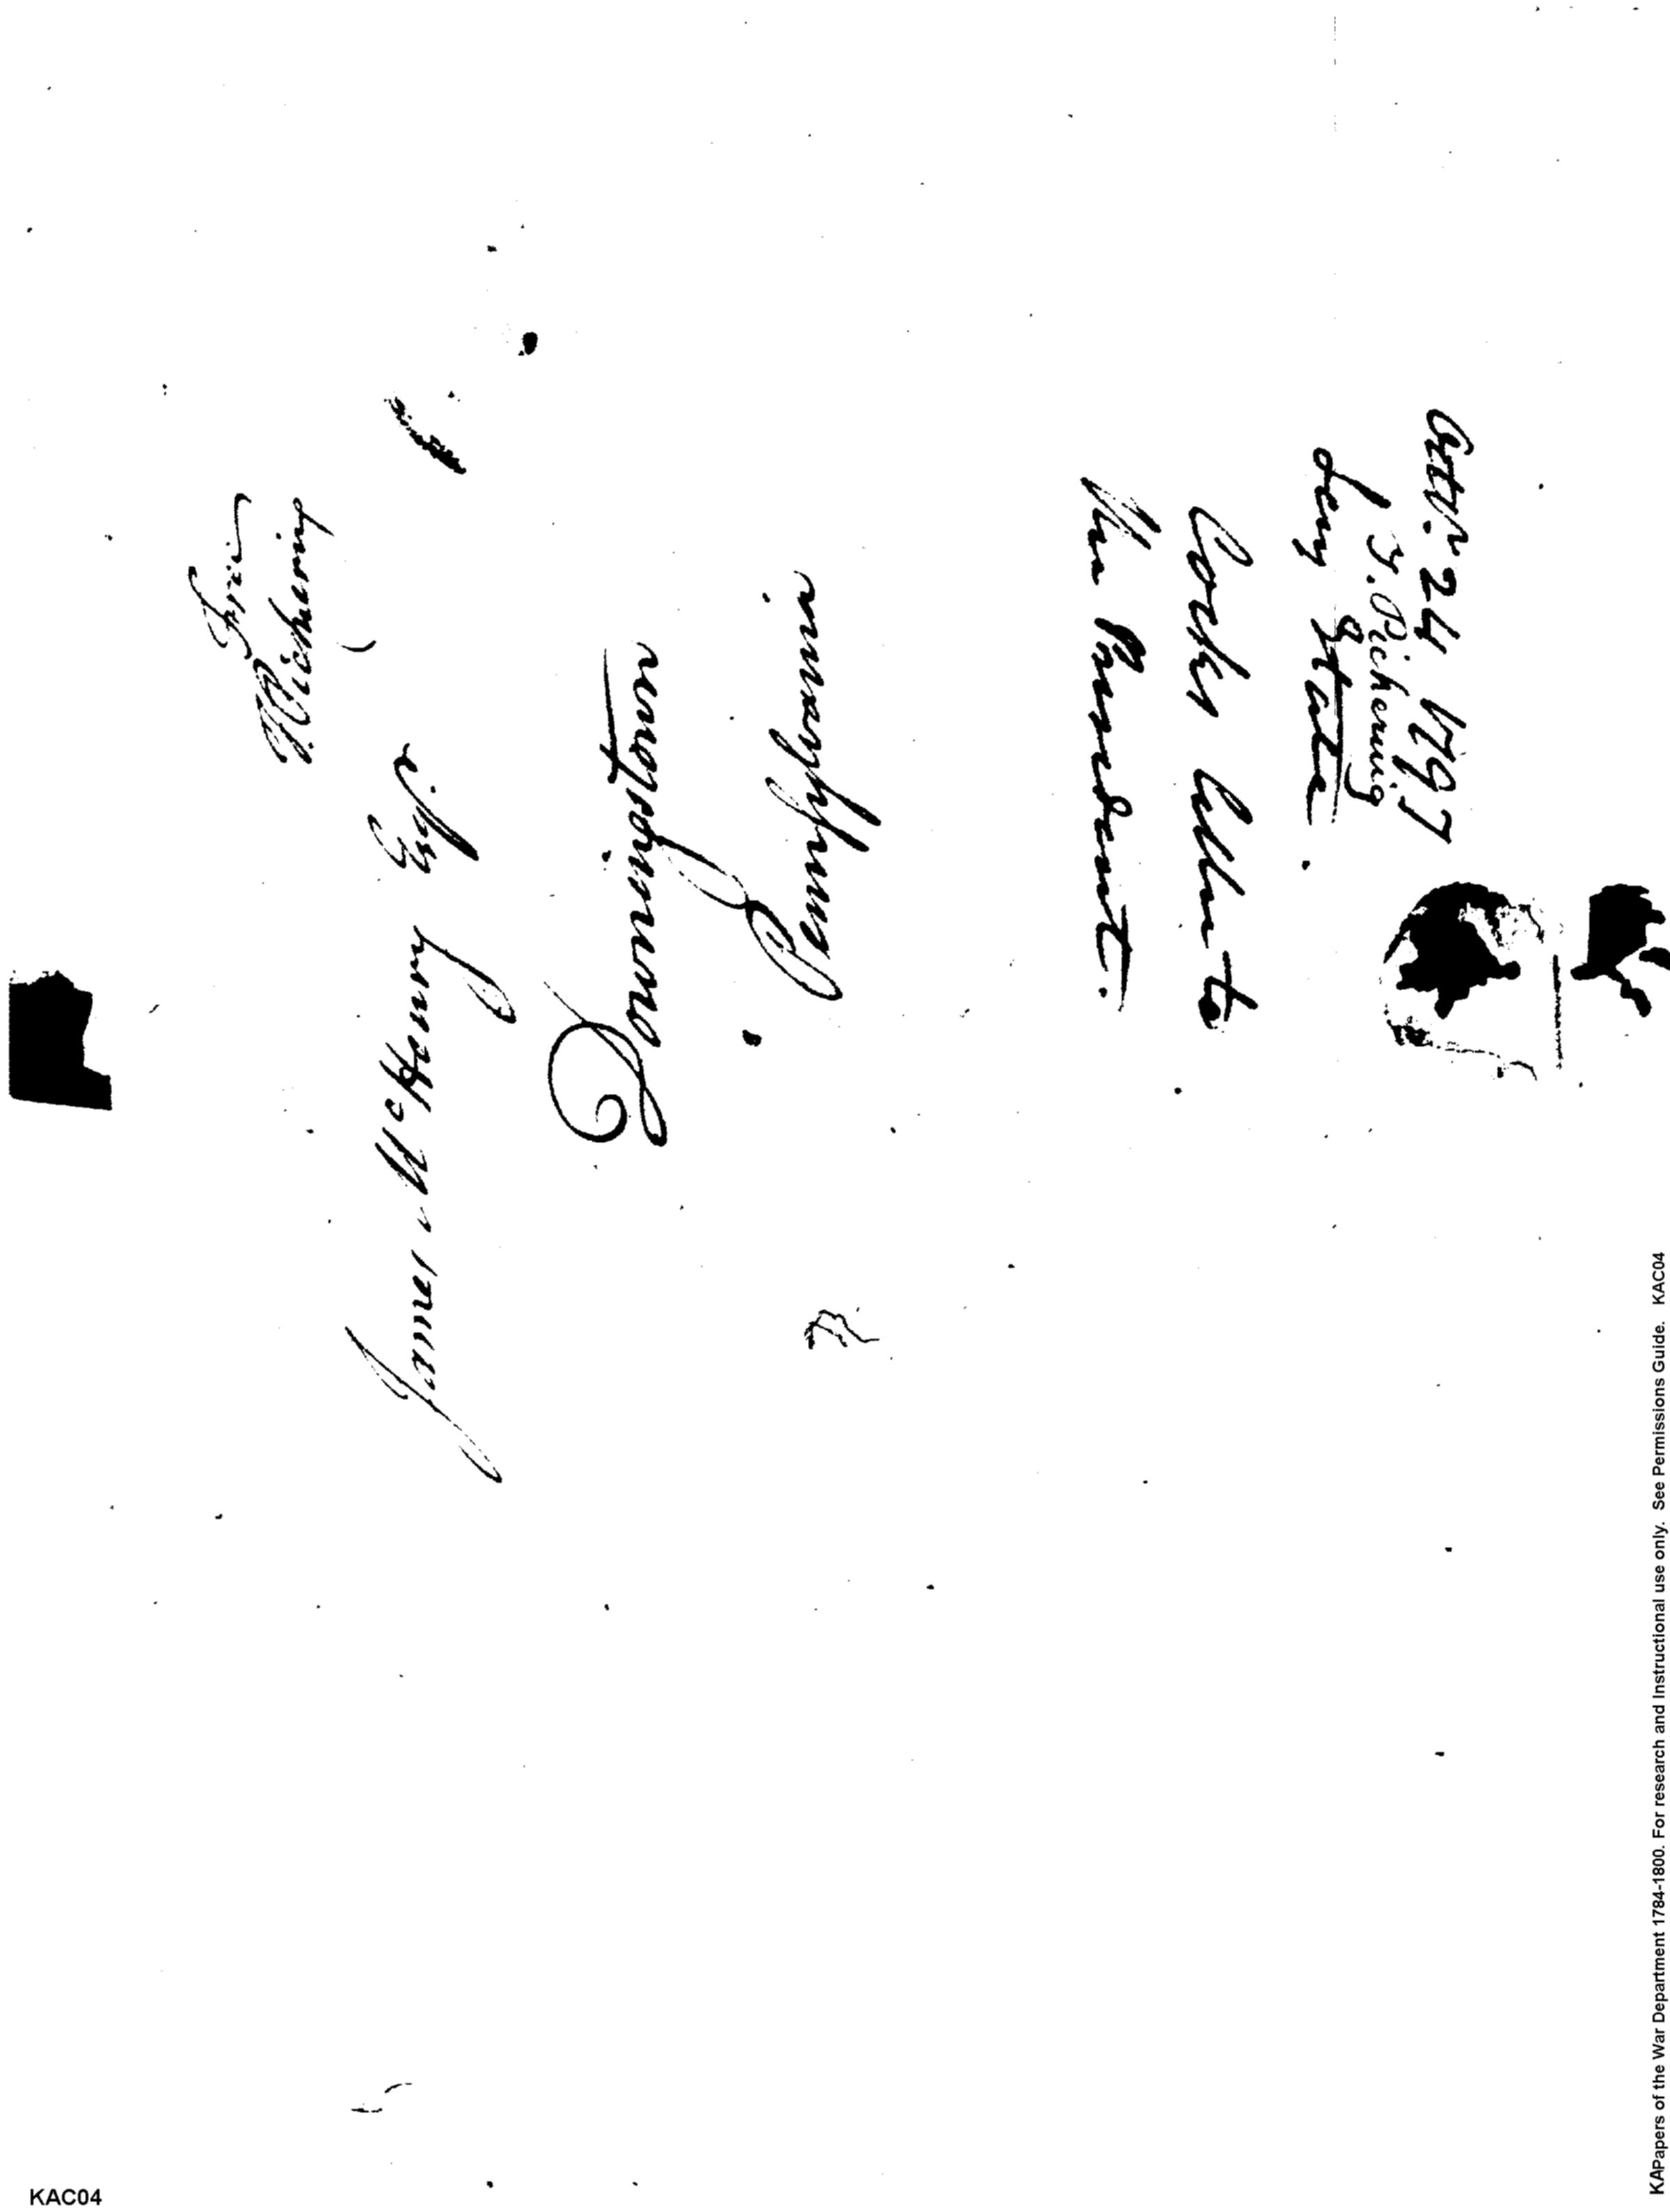 Free
T. Pickering
James McHenry Esq.
Downingtown
Pennsylvania
Octr. 24 1797
T. Pickering
Secy of State
Copy letter to
the President.
KAC04
KAPapers of the War Department 1784-1800. For research and Instructional use only. See Permissions Guide. KAC04